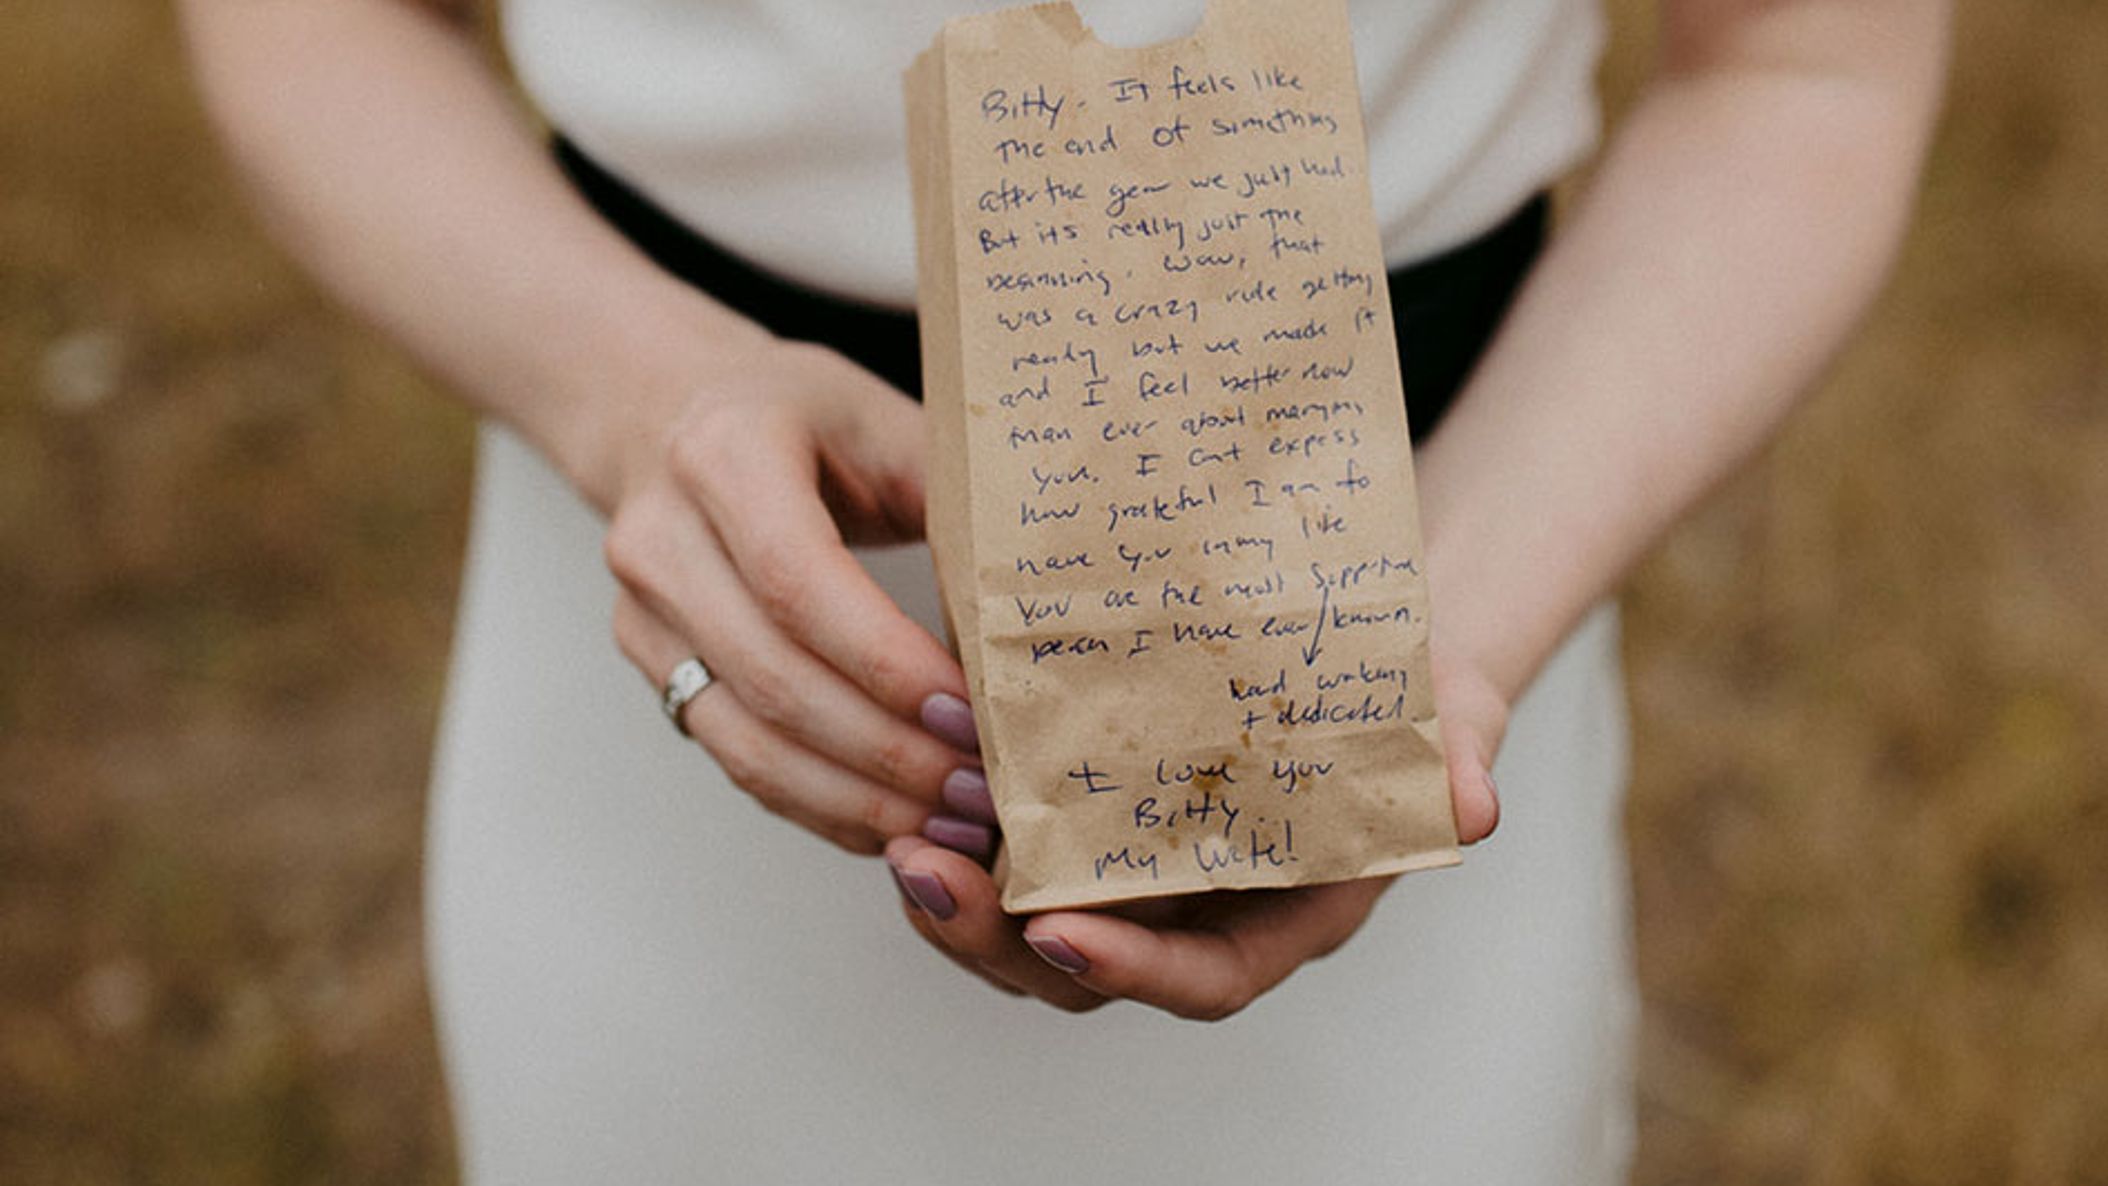 Bitty. It feels like
the end of something
after the year we just had.
But its really just the
beginning. Wow, that
was a crazy ride getting
ready but we made it
and I feel better now
than ever about marrying
you. I cant express
how grateful I am to
have you in my life
You are the most supportive
person I have ever known.
hard working
+ dedicated.
I love you
Bitty.
My Wife!